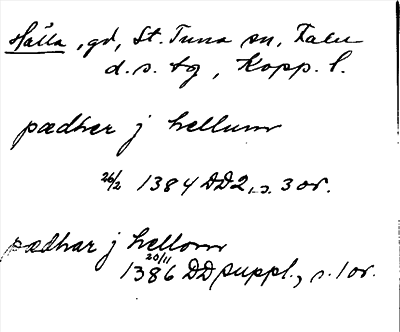 Hälla, gd, St. Tuna sn, Falu
d. s. tg, Kopp. l.
pædher j hellum
26/2 1384 DD2, s. 3 or.
pædhar j hellom
20/11 1386 DD suppl., s. 1 or.